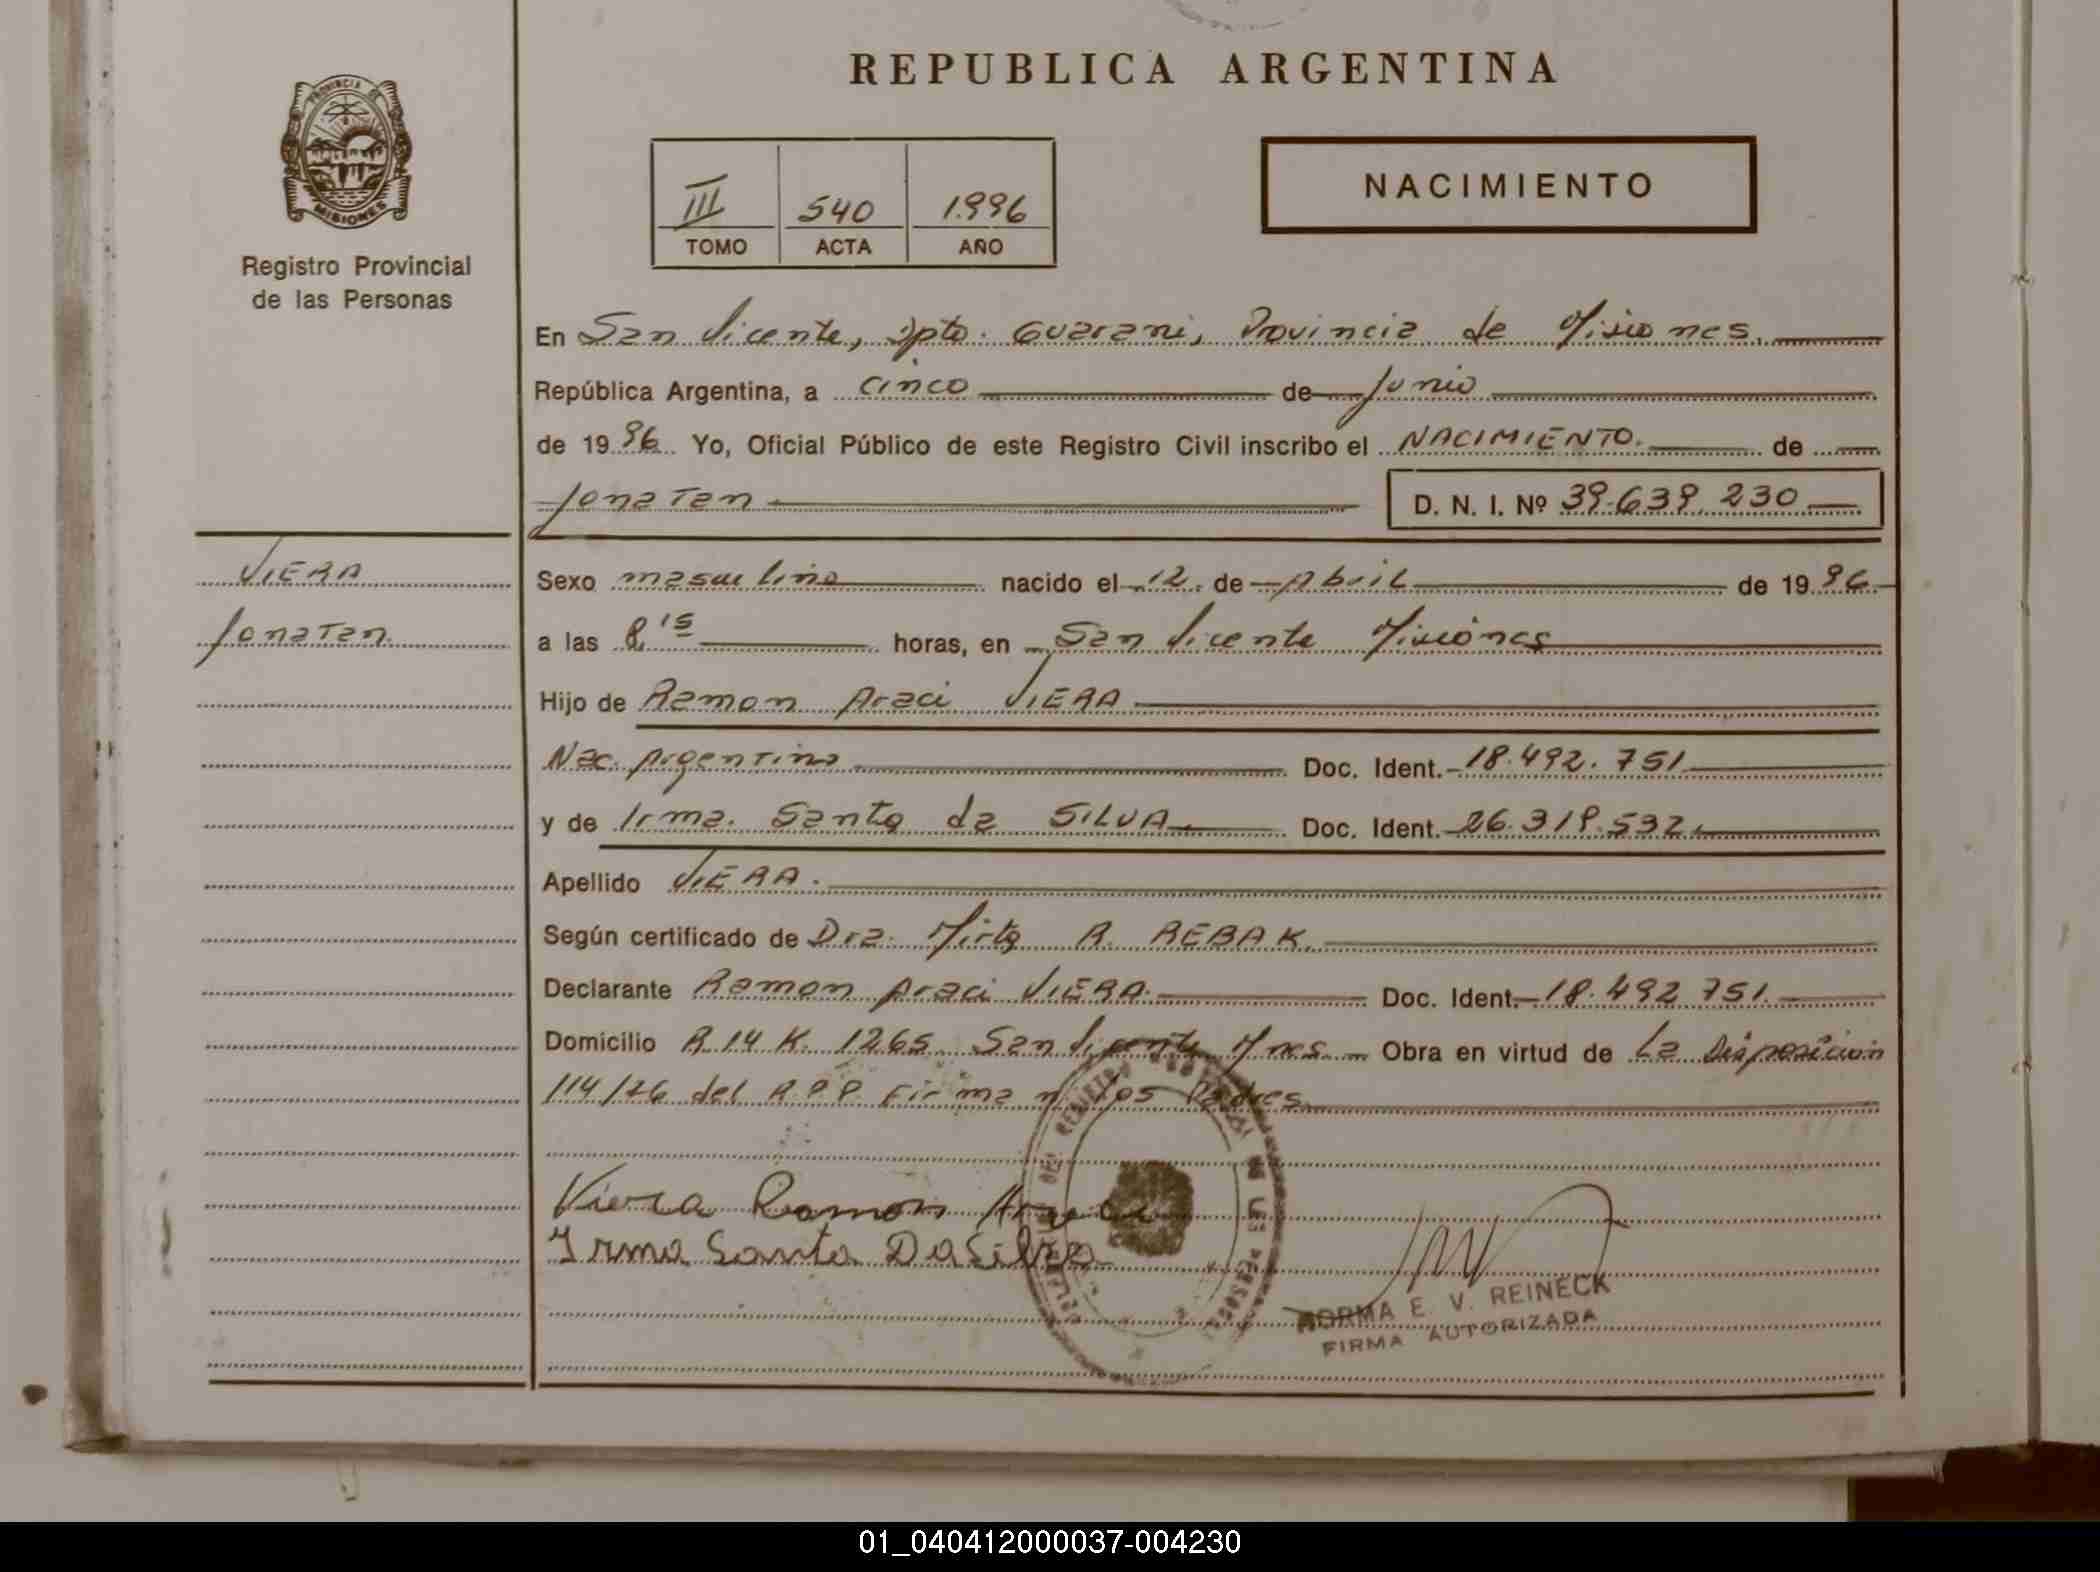 REPUBLICA ARGENTINA
PROVINCIA DE
MISIONES
Registro Provincial
de las Personas
III 540 1.996
TOMO ACTA AÑO
NACIMIENTO
En San Vicente, Dpto. Guarani, Provincia de Misiones.
República Argentina, a cinco de Junio
de 19 96. Yo, Oficial Público de este Registro Civil inscribo el NACIMIENTO. de
Jonatan
D. N. I. Nº 39.639.230
VIERA
Jonatan
Sexo masculino nacido el 12 de Abril de 19 96
a las 8,15 horas, en San Vicente Misiones
Hijo de Ramon Araci VIERA
Nac. Argentino Doc. Ident. 18.492.751
y de Irma Santa da SILVA Doc. Ident. 26.319.532
Apellido VIERA.
Según certificado de Dra. Mirta R. REBAK.
Declarante Ramon Araci VIERA. Doc. Ident. 18.492.751.
Domicilio R.14 K. 1265 San Vicente Mnes. Obra en virtud de La Disposicion
114/76 del R.P.P. Firman los Padres.
Viera Ramon
Irma Santa Da Silva
NORMA E. V. REINECK
FIRMA AUTORIZADA
01_040412000037-004230